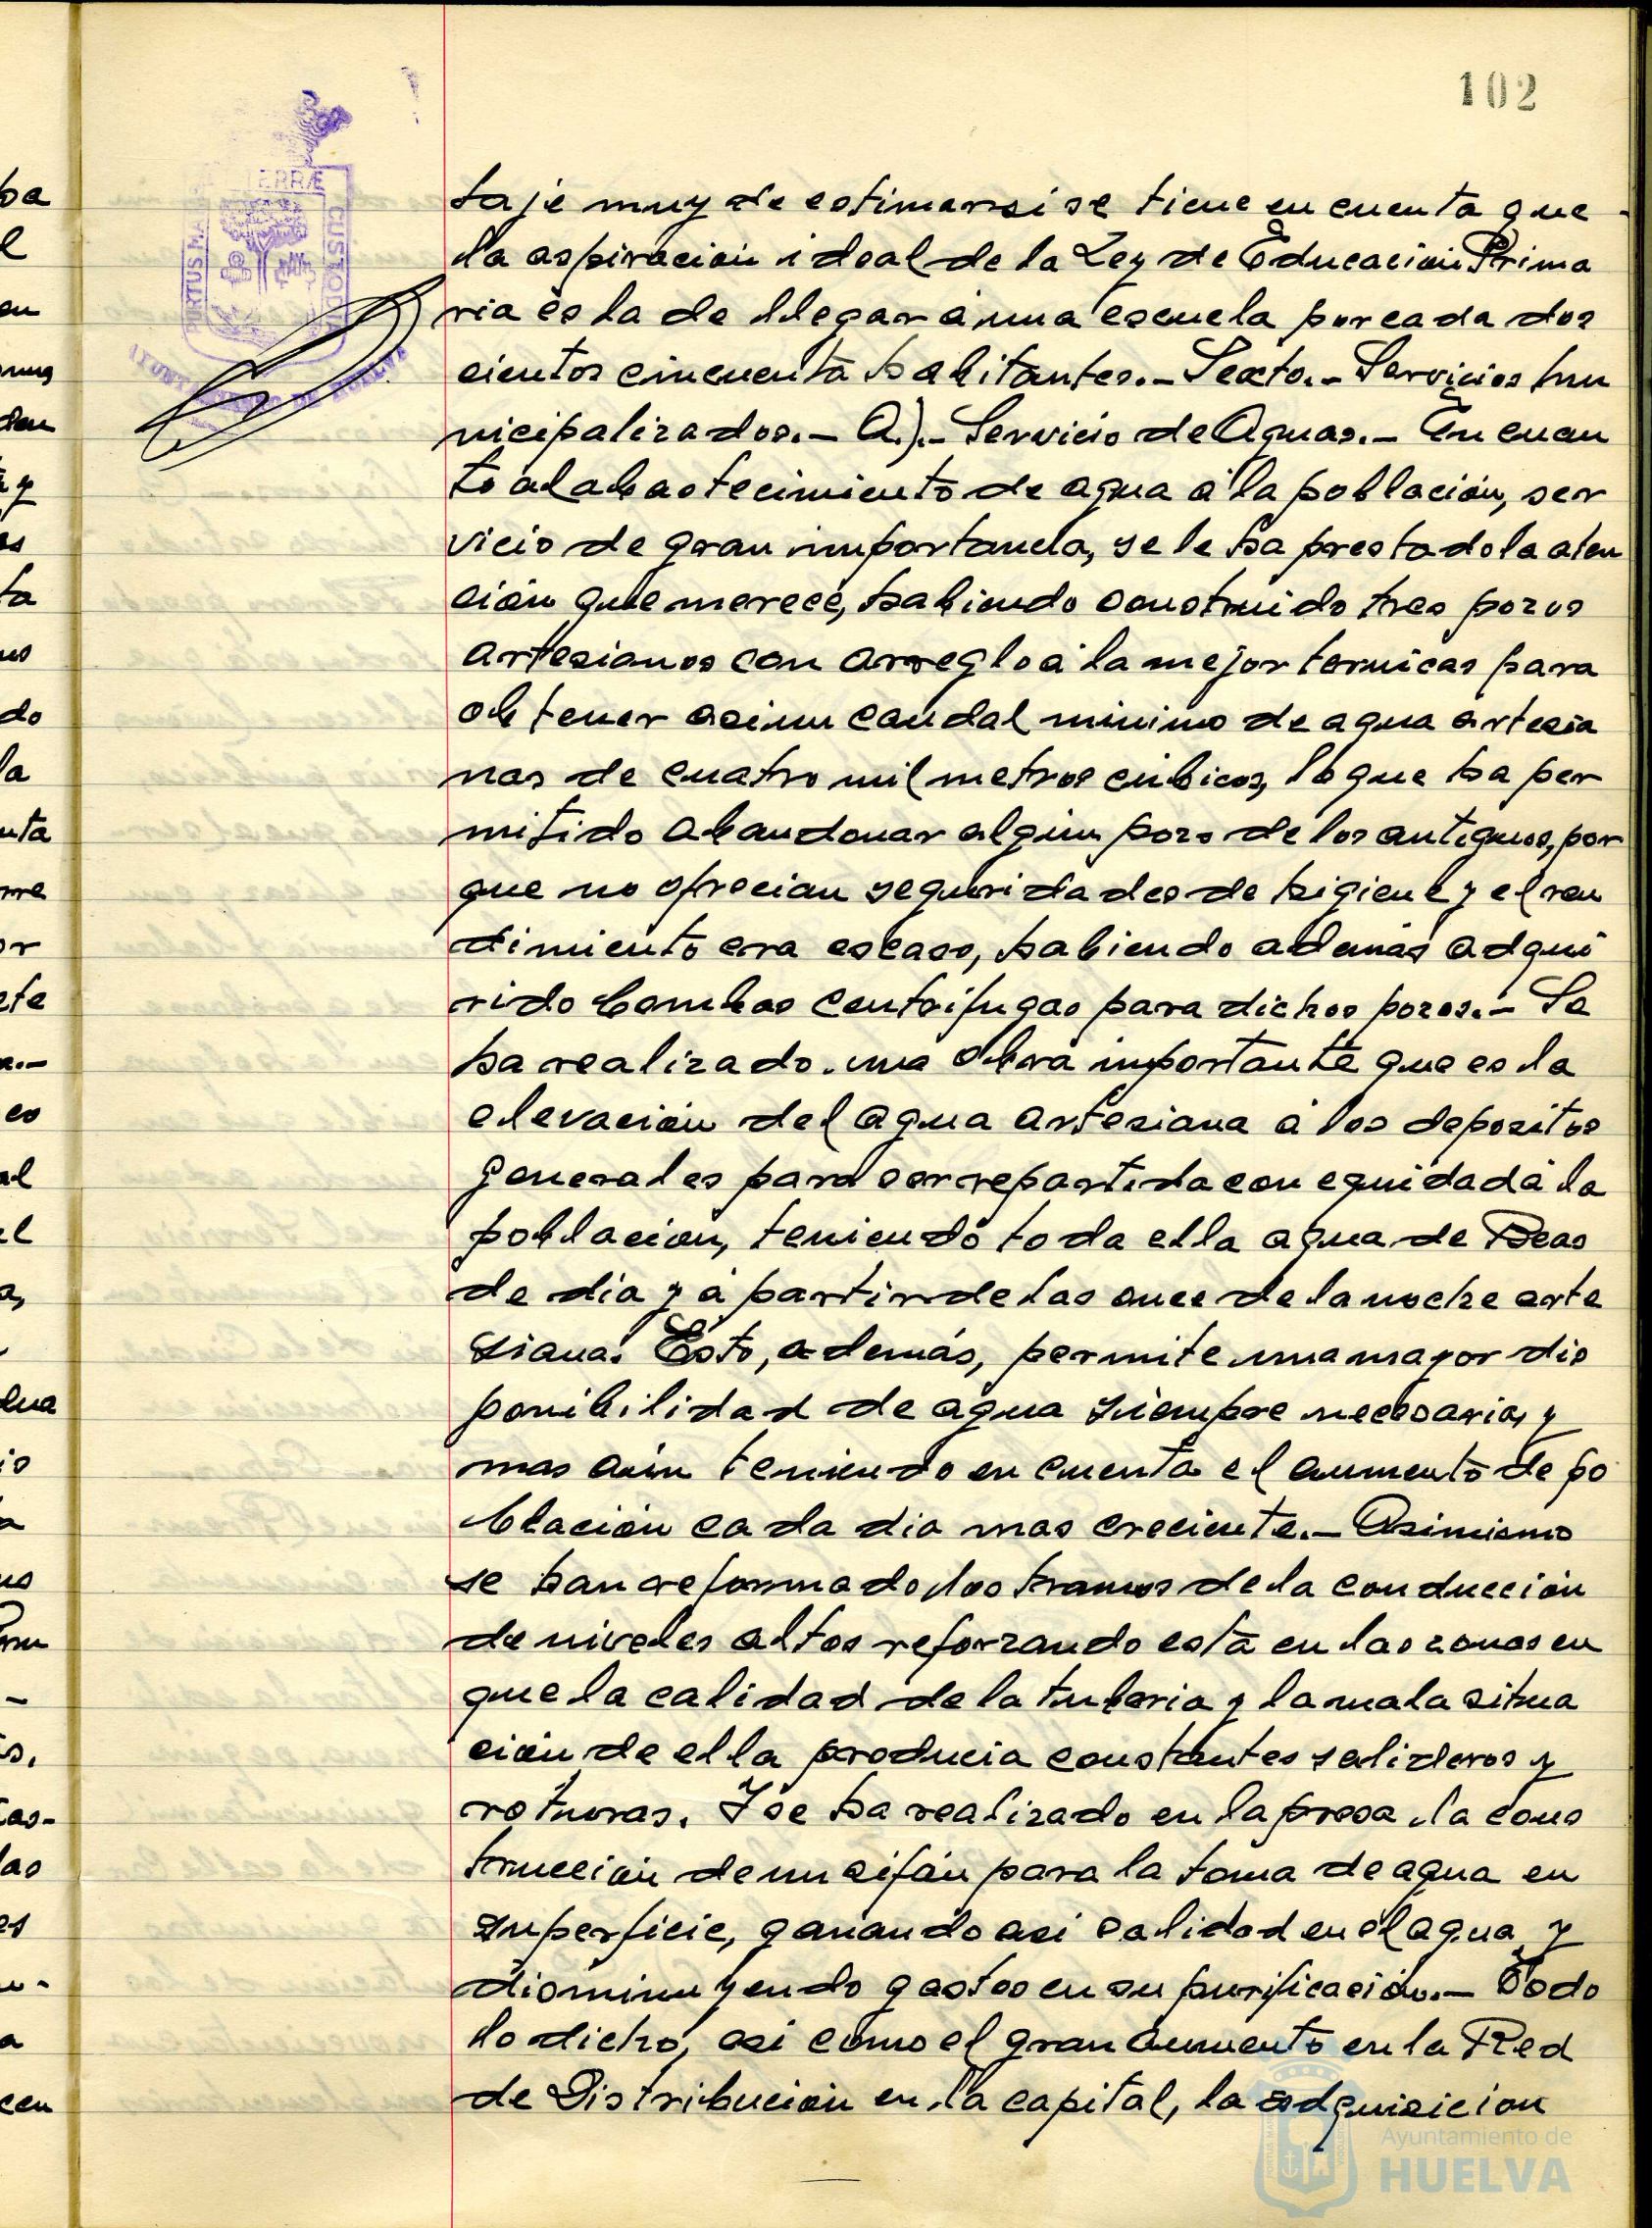 102
taje muy de estimar si se tiene en cuenta que
la aspiración ideal de la Ley de Educación Prima
ria és la de llegar á una escuela por cada dos
cientos cincuenta habitantes.- Sexto.- Servicios mu
nicipalizados.- A).- Servicio de Aguas.- En cuan
to al abastecimiento de agua á la población, ser
vicio de gran importancia, se le ha prestado la aten
ción que merece, habiendo construido tres pozos
artesianos con arreglo á la mejor ternicas para
obtener asi un caudal minimo de agua artesia
nas de cuatro mil metros cúbicos, lo que ha per
mitido abandonar algún pozo de los antiguos, por
que no ofrecian seguridades de higiene y el ren
dimiento era escaso, habiendo además adqui
rido bombas centrifugas para dichos pozos.- Se
ha realizado una obra importante que es la
elevación del agua artesiana á los depositos
generales para ser repartida con equidad á la
población, teniendo toda ella agua de Beas
de dia y á partir de las once de la noche arte
siana. Esto, además, permite una mayor dis
ponibilidad de agua siempre necesaria, y
mas aún teniendo en cuenta el aumento de po
blación cada dia mas creciente.- Asimismo
se han reformado los tramos de la conducción
de niveles altos reforzando esta en las zonas en
que la calidad de la tuberia y la mala situa
ción de ella producia constantes salideros y
roturas. Y se ha realizado en la presa la cons
trucción de un sifón para la toma de agua en
superficie, ganando asi calidad en el agua y
disminuyendo gastos en su purificación.- Todo
lo dicho, asi como el gran aumento en la Red
de Distribución en la capital, la adquisicion
PORTUS MA
TERRÆ
CUSTODIA
AYUNTAMIENTO DE HUELVA
Ayuntamiento de
HUELVA